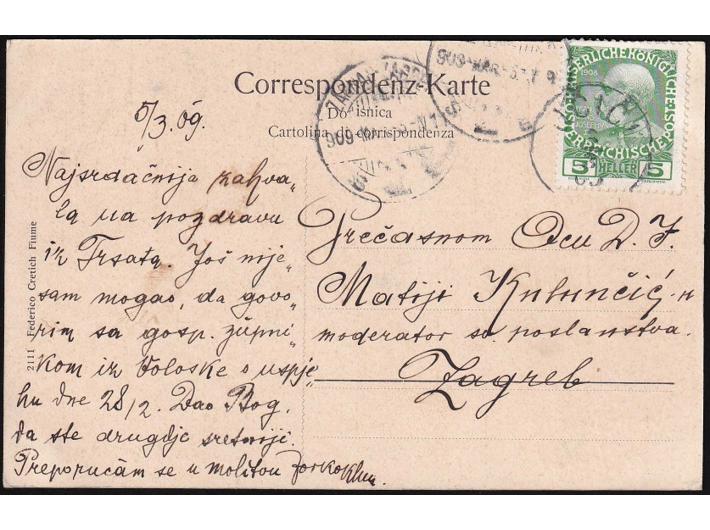 Correspondenz-Karte
Dopisnica
Cartolina di corrispondenza
5/3.09.
Najsrdačnija zahva-
la na pozdravu
iz Trsata. Još nije-
sam mogao, da govo-
rim sa gosp. župni-
kom iz Voloske o uspje-
hu dne 28/2. Dao Bog.
da ste drugdje sretniji.
Preporučam se u molitvu
Prečasnom Ocu D. J.
Matiji Kulunčić-u
moderator
Zagreb
2111 Federico Cretich Fiume
KAISERLICHE KÖNIGLICHE
1908
ÖSTERREICHISCHE
5 HELLER 5